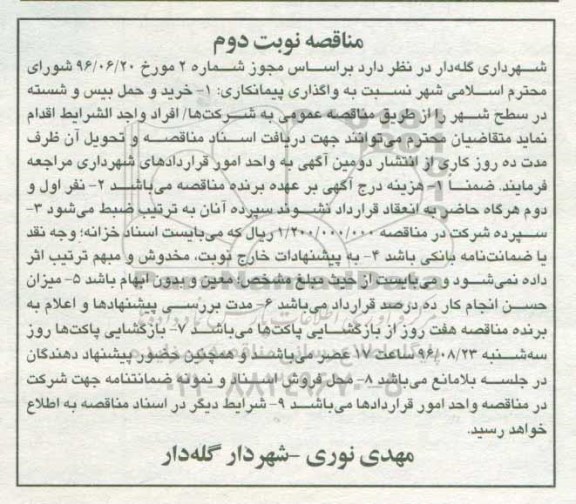 مناقصه نوبت دوم
شهرداری گله‌دار در نظر دارد براساس مجوز شماره ۲ مورخ ۹۶/۰۶/۲۰ شورای
محترم اسلامی شهر نسبت به واگذاری پیمانکاری: ۱- خرید و حمل بیس و شسته
در سطح شهر را از طریق مناقصه عمومی به شرکت‌ها/ افراد واجد الشرایط اقدام
نماید متقاضیان محترم می‌توانند جهت دریافت اسناد مناقصه و تحویل آن ظرف
مدت ده روز کاری از انتشار دومین آگهی به واحد امور قراردادهای شهرداری مراجعه
فرمایند. ضمنا ۱- هزینه درج آگهی بر عهده برنده مناقصه می‌باشد ۲- نفر اول و
دوم هرگاه حاضر به انعقاد قرارداد نشوند سپرده آنان به ترتیب ضبط می‌شود ۳-
سپرده شرکت در مناقصه ۱/۲۰۰/۰۰۰/۰۰۰ ریال که می‌بایست اسناد خزانه؛ وجه نقد
یا ضمانت‌نامه بانکی باشد ۴- به پیشنهادات خارج نوبت، مخدوش و مبهم ترتیب اثر
داده نمی‌شود و می‌بایست از حیث مبلغ مشخص؛ معین و بدون ابهام باشد ۵- میزان
حسن انجام کار ده درصد قرارداد می‌باشد ۶- مدت بررسی پیشنهادها و اعلام به
برنده مناقصه هفت روز از بازگشایی پاکت‌ها می‌باشد ۷- بازگشایی پاکت‌ها روز
سه‌شنبه ۹۶/۰۸/۲۳ ساعت ۱۷ عصر می‌باشد و همچنین حضور پیشنهاد دهندگان
در جلسه بلامانع می‌باشد ۸- محل فروش اسناد و نمونه ضمانتنامه جهت شرکت
در مناقصه واحد امور قراردادها می‌باشد ۹- شرایط دیگر در اسناد مناقصه به اطلاع
خواهد رسید.
مهدی نوری -شهردار گله‌دار